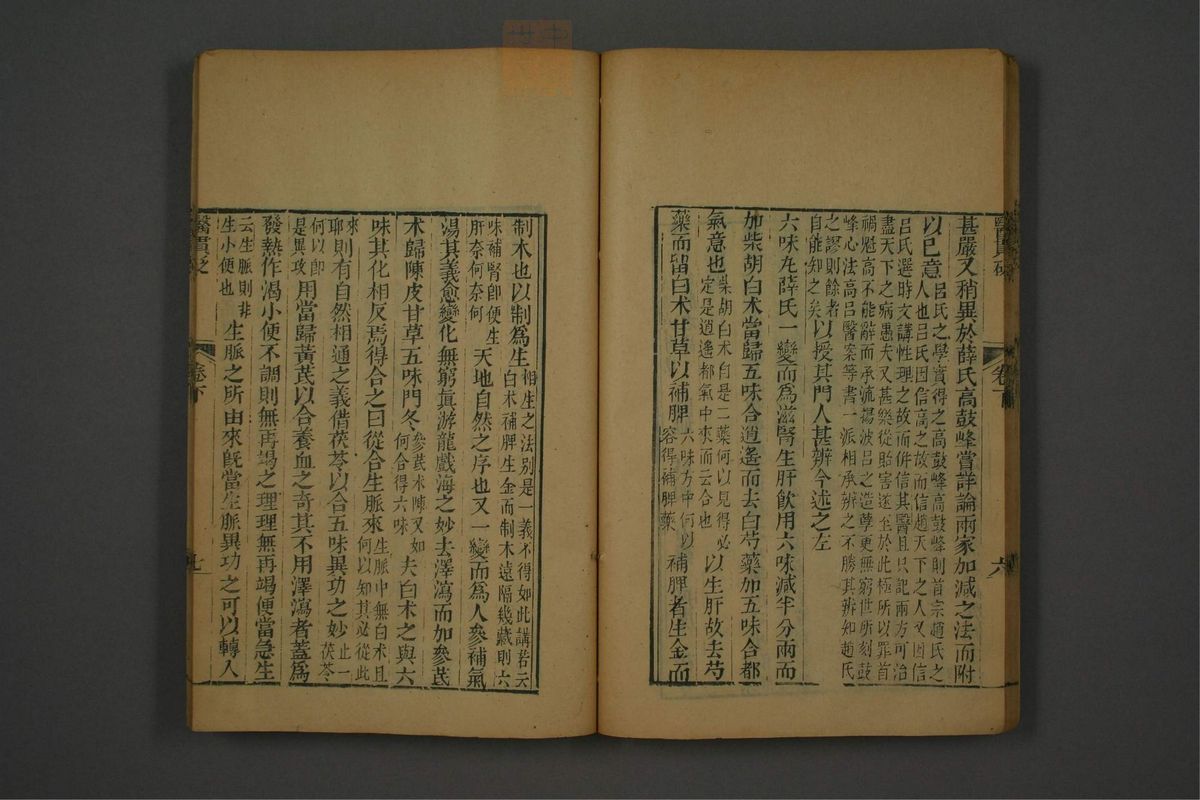 甚嚴又稍異於薛氏高鼓峰嘗詳論兩家加減之法而附
以己意呂氏之學實得之高鼓峰高鼓峰則首宗趙氏之
人也呂氏因信高之故而信趙天下之人又因信
呂氏選時文講性理之故而併信其醫且只記兩方可治
盡天下之病愚夫又甚樂從貽害遂至於此極所以罪首
禍魁高不能辭而承流揚波呂之造孽更無窮世所刻鼓
峰心法高呂醫案等書一派相承辨之不勝其辨知趙氏
之謬則餘者
自能知之矣以授其門人甚辨今述之左
六味左薛氏一變而為滋腎生肝飲用六味減半分兩而
加柴胡白朮當歸五味合逍遙而去白芍藥加五味合都
氣意也柴胡白朮自是二藥何以見得必
定是逍遙都氣中來而云合也以生肝故去芍
藥而留白朮甘草以補脾六味方中何以
容得補脾藥補脾者生金而
醫貫砭
卷下
六
制木也以制為生相生之法別是一義不得如此講若云
白朮補脾生金而制木遠隔幾藏則六
味補腎卽便生
肝奈何奈何天地自然之序也又一變而為人參補氣
湯其義愈變化無窮眞游龍戲海之妙去澤瀉而加參芪
朮歸陳皮甘草五味門冬參芪朮陳又如
何合得六味夫白朮之與六
味其化相反焉得合之曰從合生脈來生脈中無白朮且
何以知其必從此
來
耶則有自然相通之義借茯苓以合五味異功之妙止一
茯苓
何以卽
是異攻用當歸黃芪以合養血之奇其不用澤瀉者蓋為
發熱作渴小便不調則無再竭之理理無再竭便當急生
云生脈則非
生小便也生脈之所由來旣當生脈異功之可以轉入
醫貫砭
卷下
七